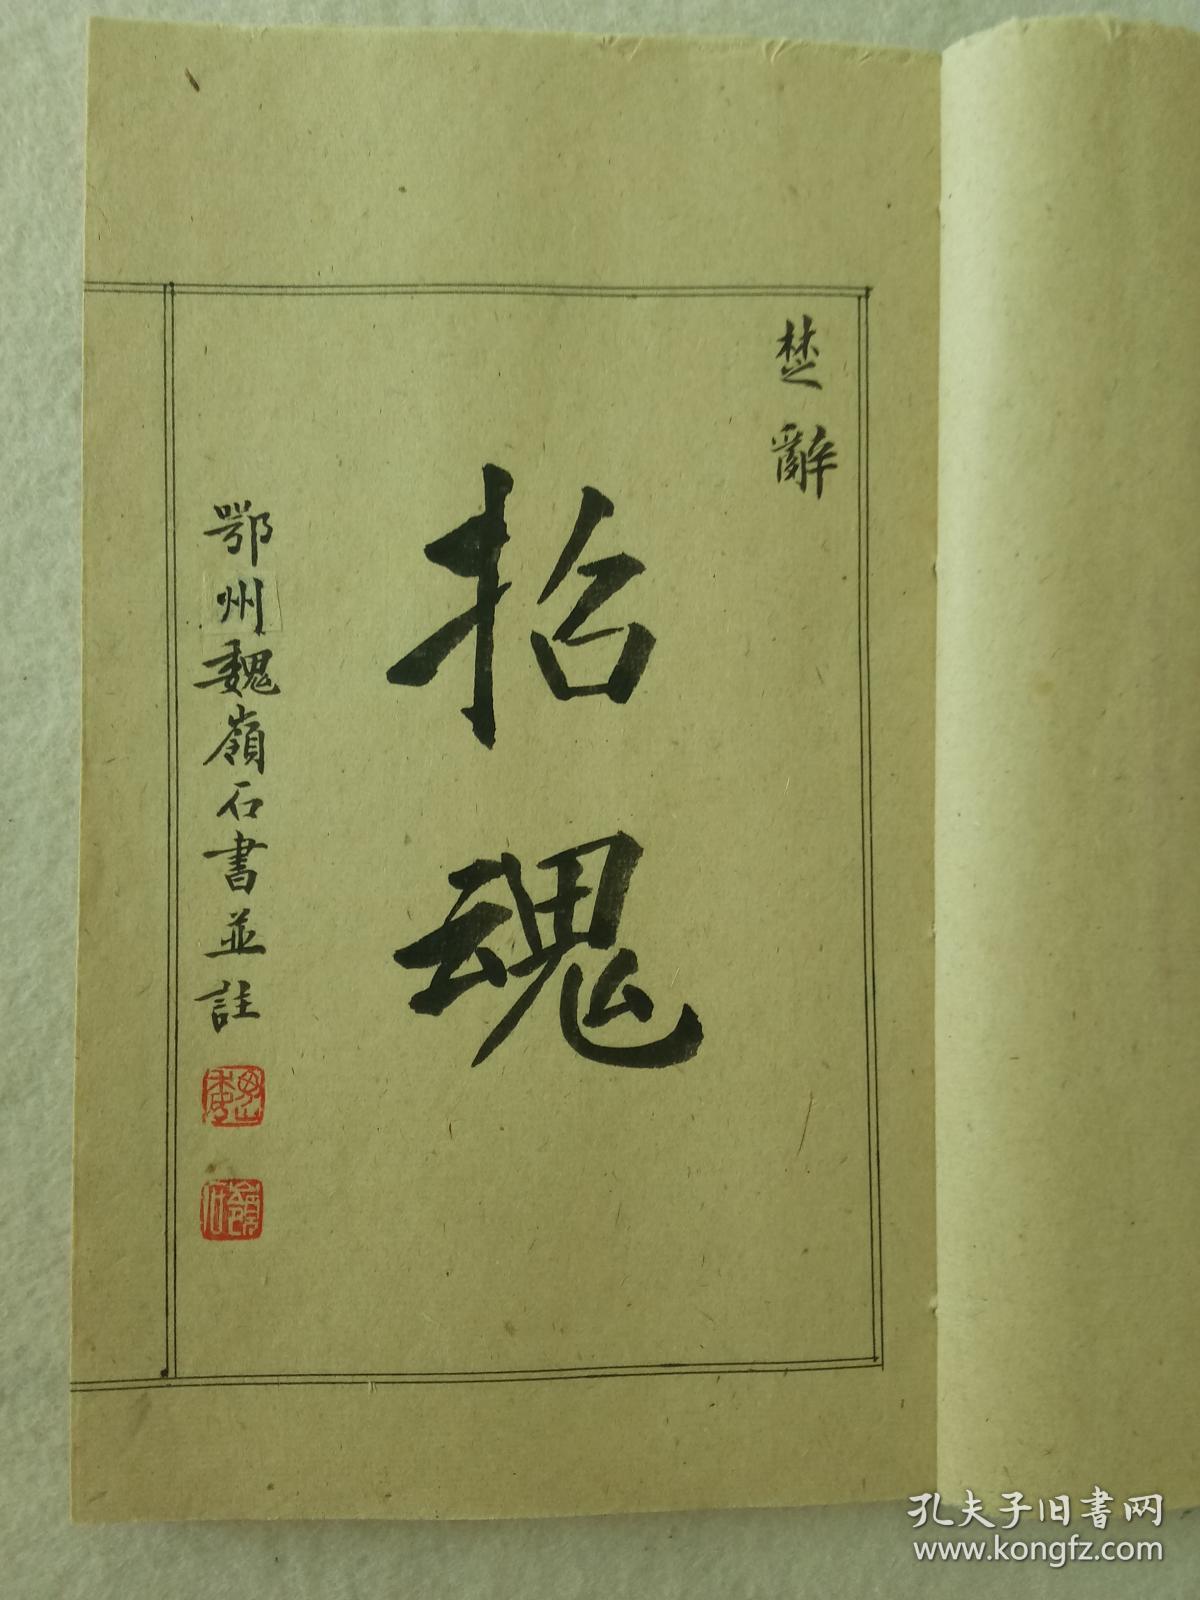 楚辭
招魂
鄂州魏嶺石書並註
魏
嶺石
孔夫子旧书网
www.kongfz.com